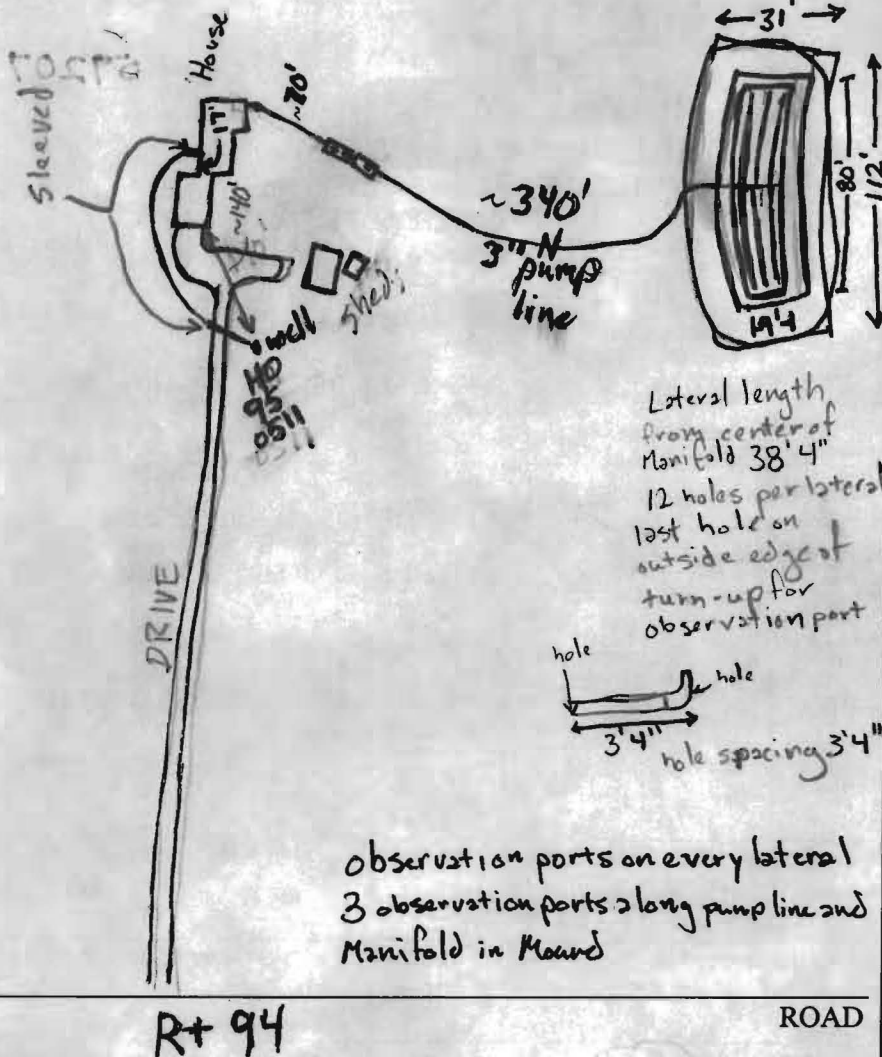 House
31'
Sleeved
17'
~140'
~340'
3" pump
line
80'
112'
sheds
well
HO
95
0511
Lateral length
from center of
Manifold 38'4"
12 holes per lateral
last hole on
outside edge of
turn-up for
observation port
DRIVE
hole
hole
3'4"
hole spacing 3'4"
observation ports on every lateral
3 observation ports along pump line and
Manifold in Mound
Rt 94
ROAD